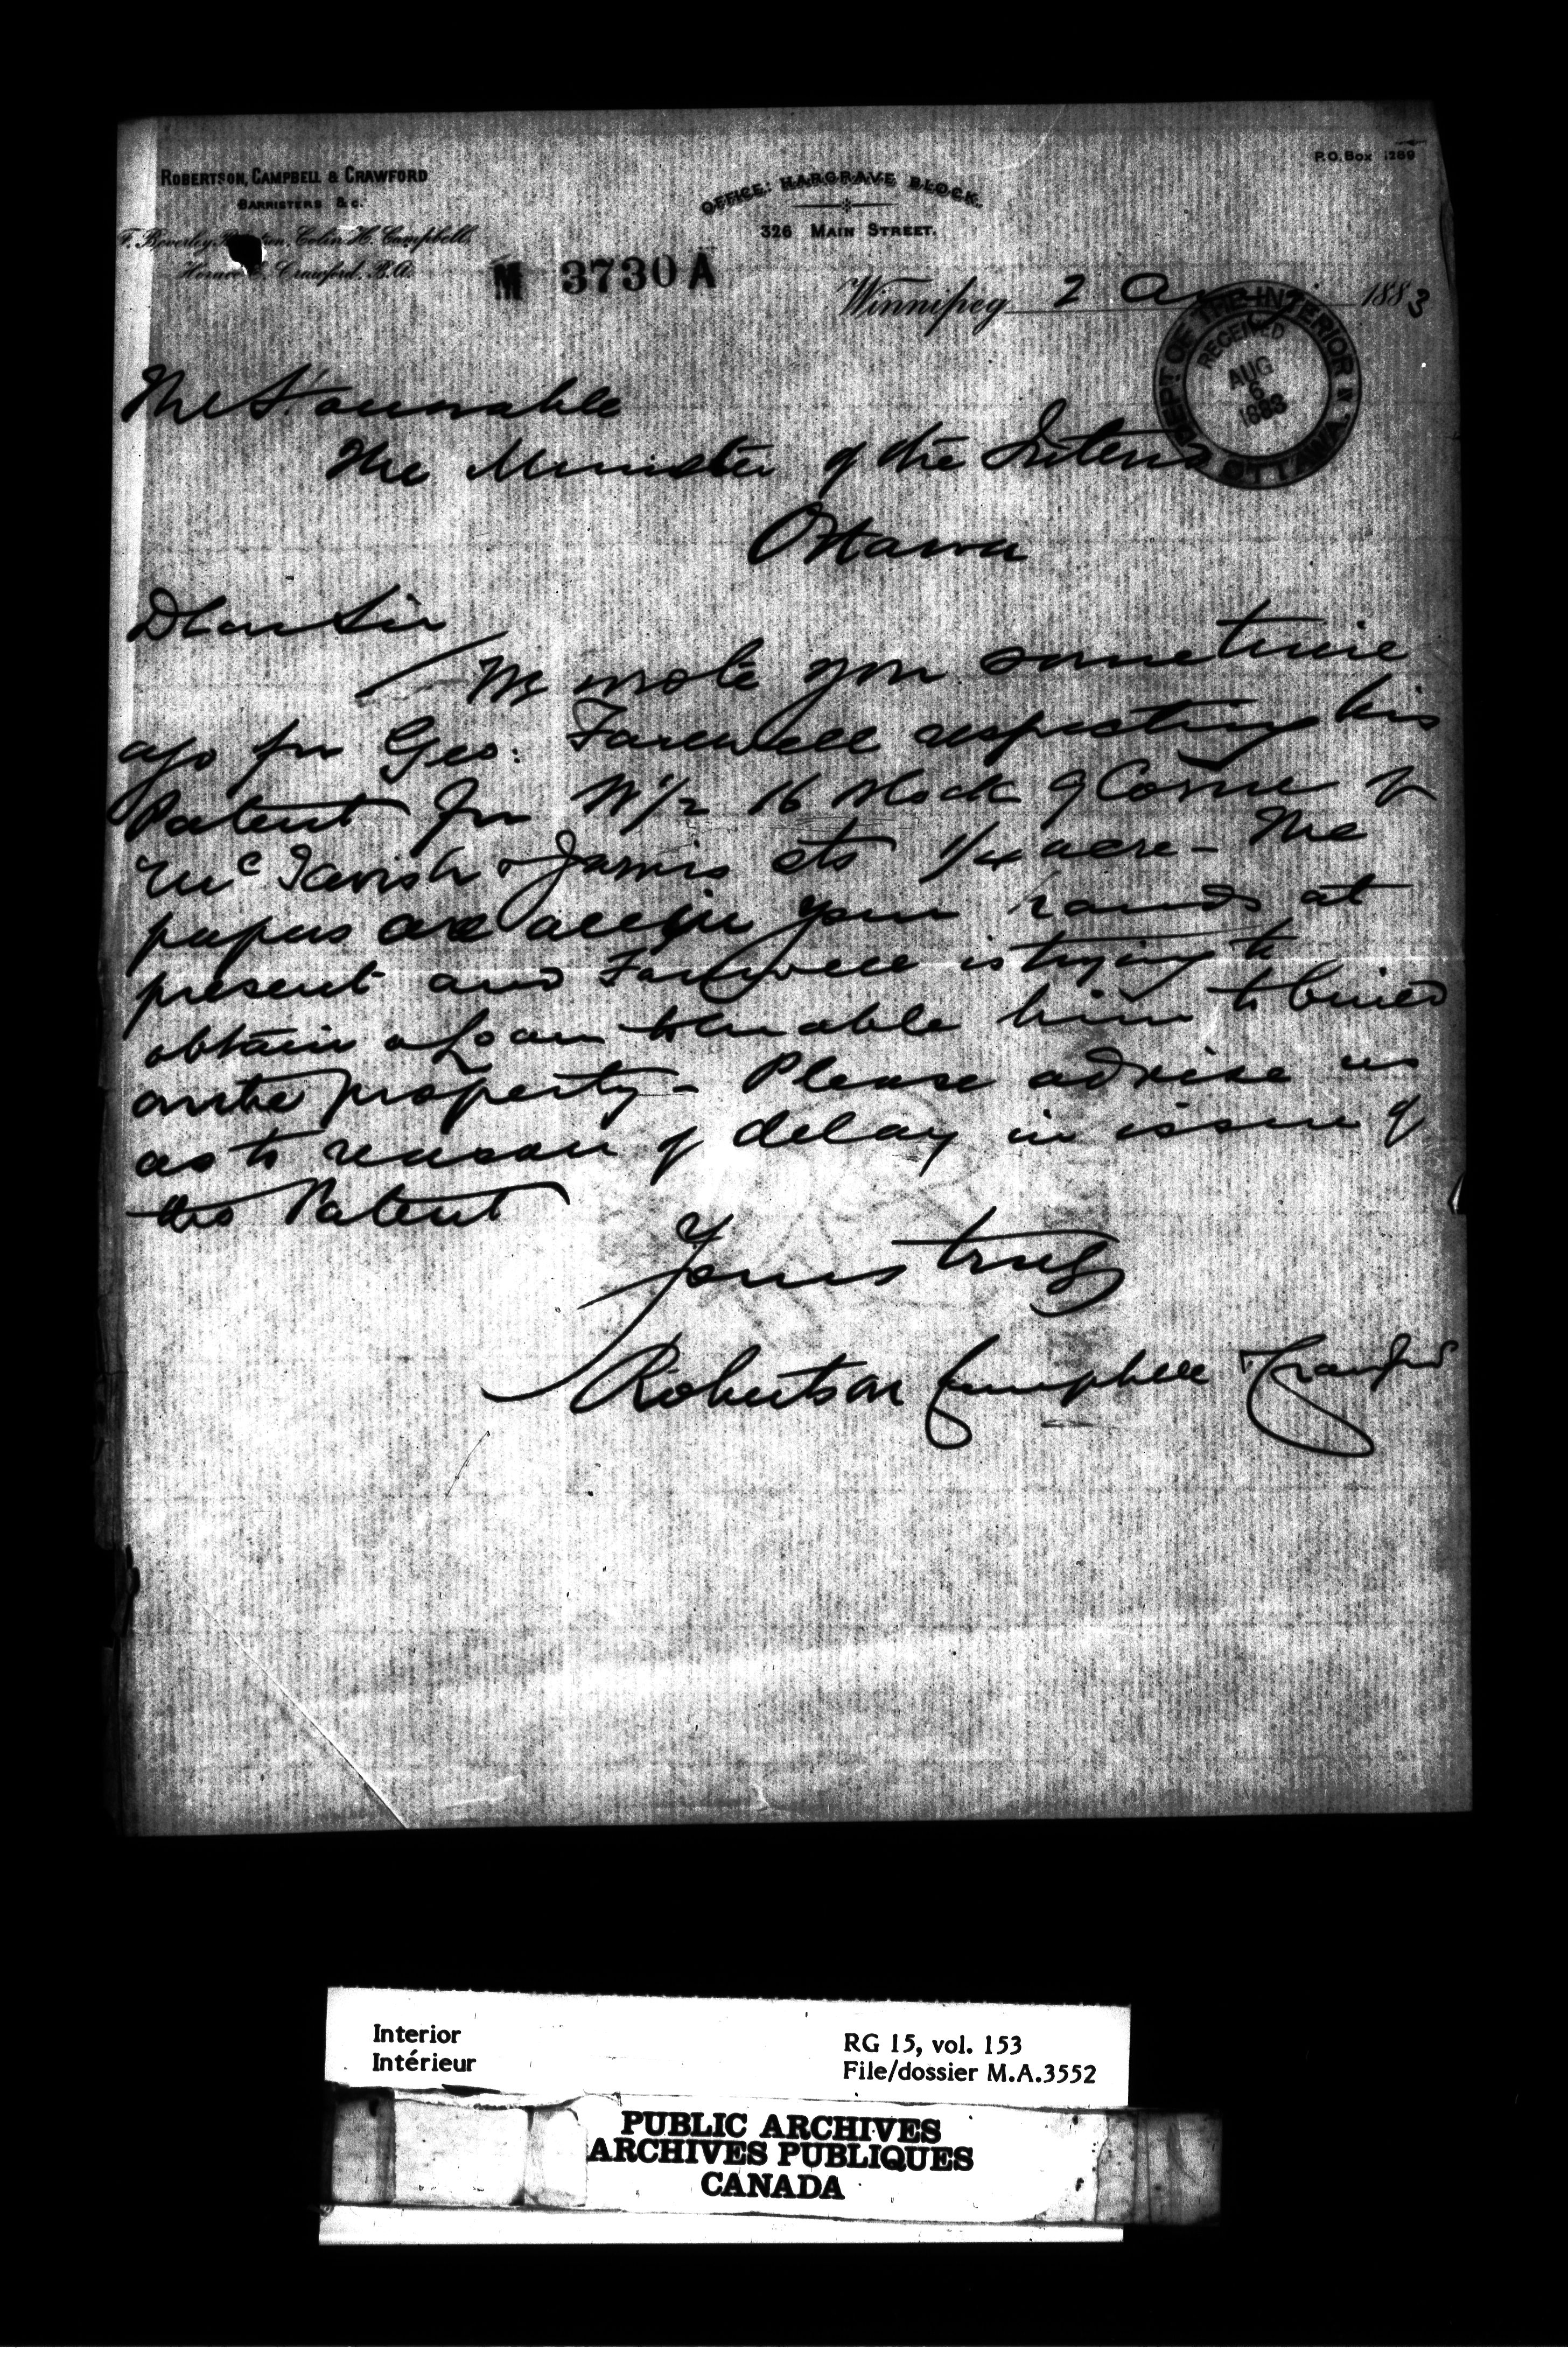 P.O. Box 1289
ROBERTSON, CAMPBELL & CRAWFORD
BARRISTERS &c.
OFFICE: HARGRAVE BLOCK.
326 MAIN STREET.
F. Beverley Colin H. Campbell,
Horace E. Crawford, B.A.
M 3730 A
Winnipeg 2 Aug 1883
DEPT OF THE INTERIOR
RECEIVED
AUG
6
1883
OTTAWA.
The Honourable
The Minister of the Interior
Ottawa
Dear Sir
We wrote you sometime
ago for Geo: Farewell respecting his
Patent for W 1/2 16 Block 9 Corner of
McTavish & Jarvis sts 1/4 acre - The
papers are all in your hands at
present and Farewell is trying to
obtain a Loan to enable him to build
on the property - Please advise us
as to reason of delay in issue of
the Patent
Yours truly
Robertson Campbell & Crawford
Interior
Intérieur
RG 15, vol. 153
File/dossier M.A.3552
PUBLIC ARCHIVES
ARCHIVES PUBLIQUES
CANADA